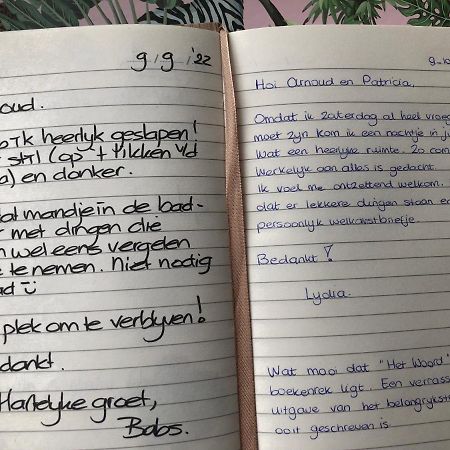 9/9/'22
oud.
ik heerlijk geslapen!
stil (op 't tikken v/d
) en donker.
mandje in de bad-
met dingen die
wel eens vergelen
te nemen. Niet nodig
plek om te verblyven!
dankt.
Hartelyke groet,
Babs.
9-10
Hoi Arnoud en Patricia,
Omdat ik Zaterdag al heel vroeg
moet zijn kom ik een nachtje in ju
Wat een heerlijke ruimte. Zo com
Werkelijk aan alles is gedacht.
Ik voel me ontzettend welkom.
dat er lekkere dingen staan e
persoonlijk welkomstbriefje.
Bedankt!
Lydia.
Wat mooi dat "Het Woord"
boekenrek ligt. Een verrass
uitgave van het belangrijkst
ooit geschreven is.